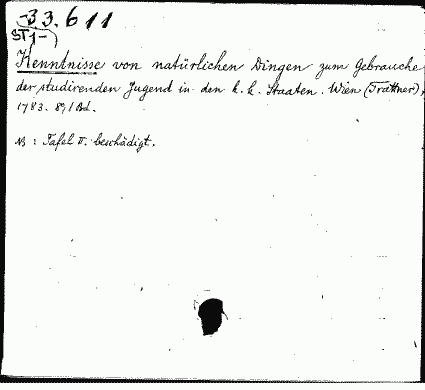 -33.611
ST1-
Kenntnisse von natürlichen Dingen zum Gebrauche
der studirenden Jugend in den k. k. Staaten. Wien (Trattner),
1783. 8º, 1 Bd.
NB: Tafel II. beschädigt.